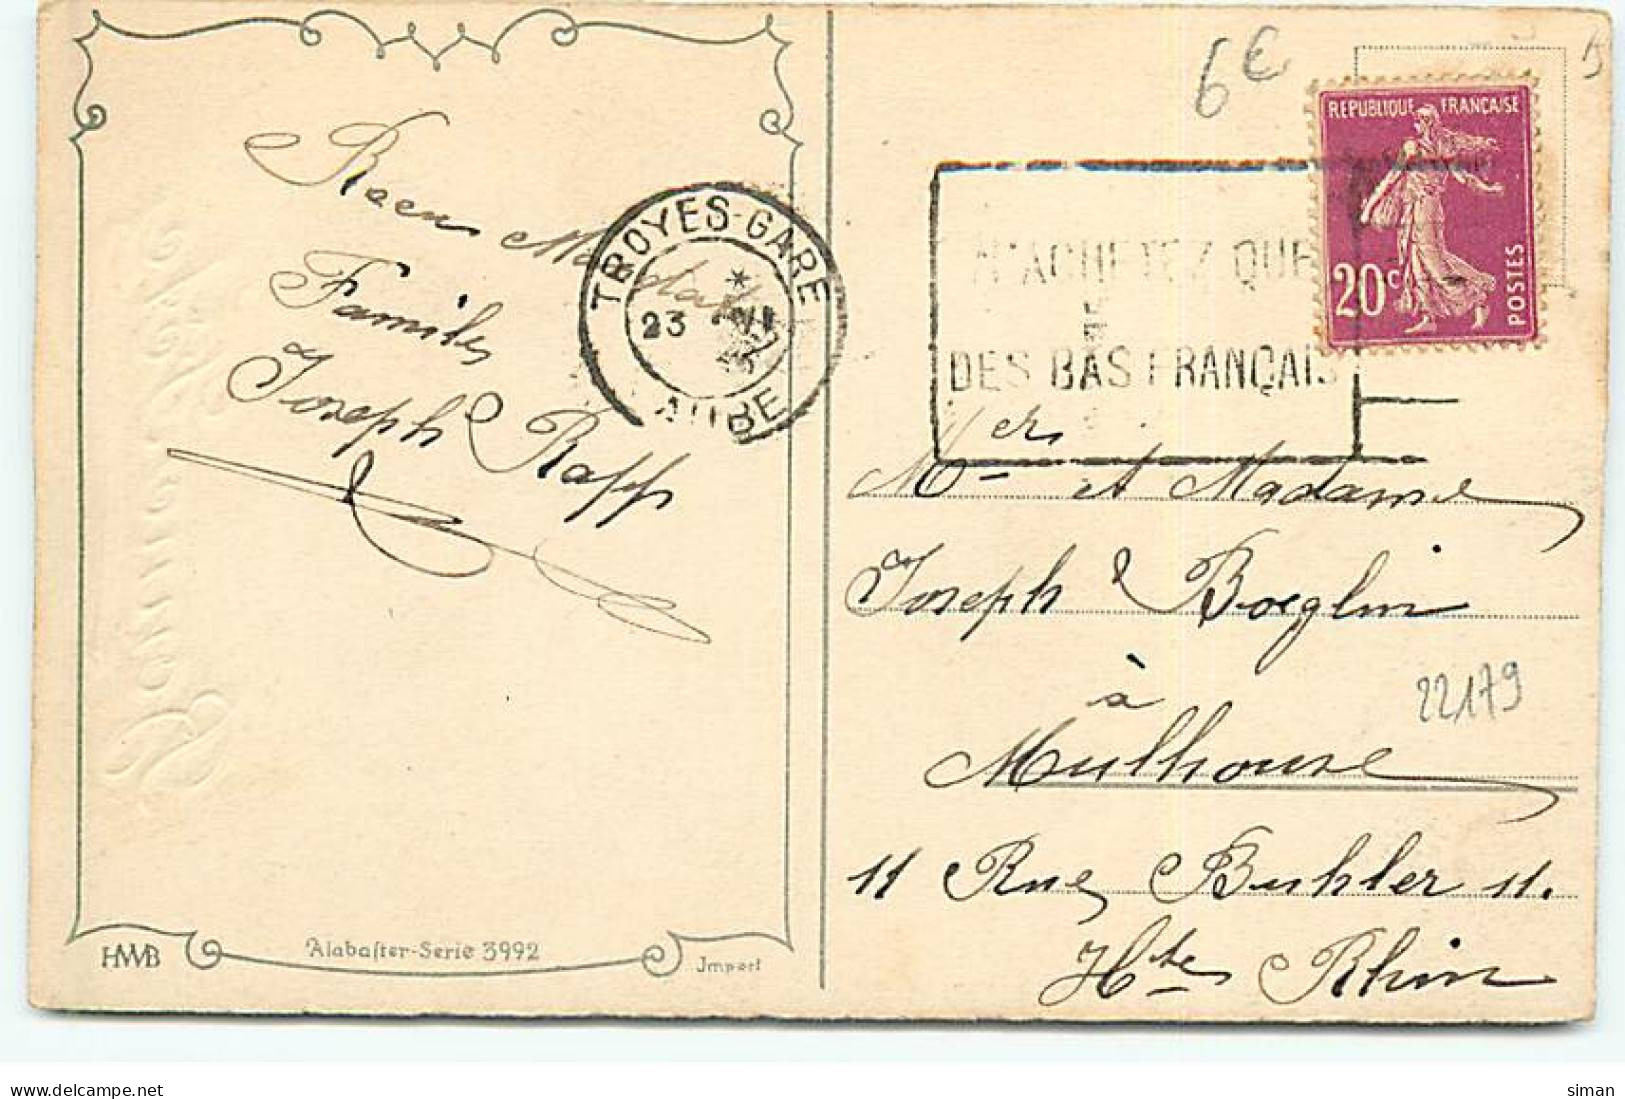 6€
REPUBLIQUE FRANÇAISE
20c POSTES
TROYES-GARE
*
23
AUBE
N'ACHETEZ QUE
DES BAS FRANÇAIS
Familes
Joseph Rapp
Mer et Madame
Joseph Boeglin
à
Mulhouse
11 Rue Buhler 11.
Hte Rhin
22179
HWB
Alabaster-Serie 3992
Import
www.delcampe.net
siman